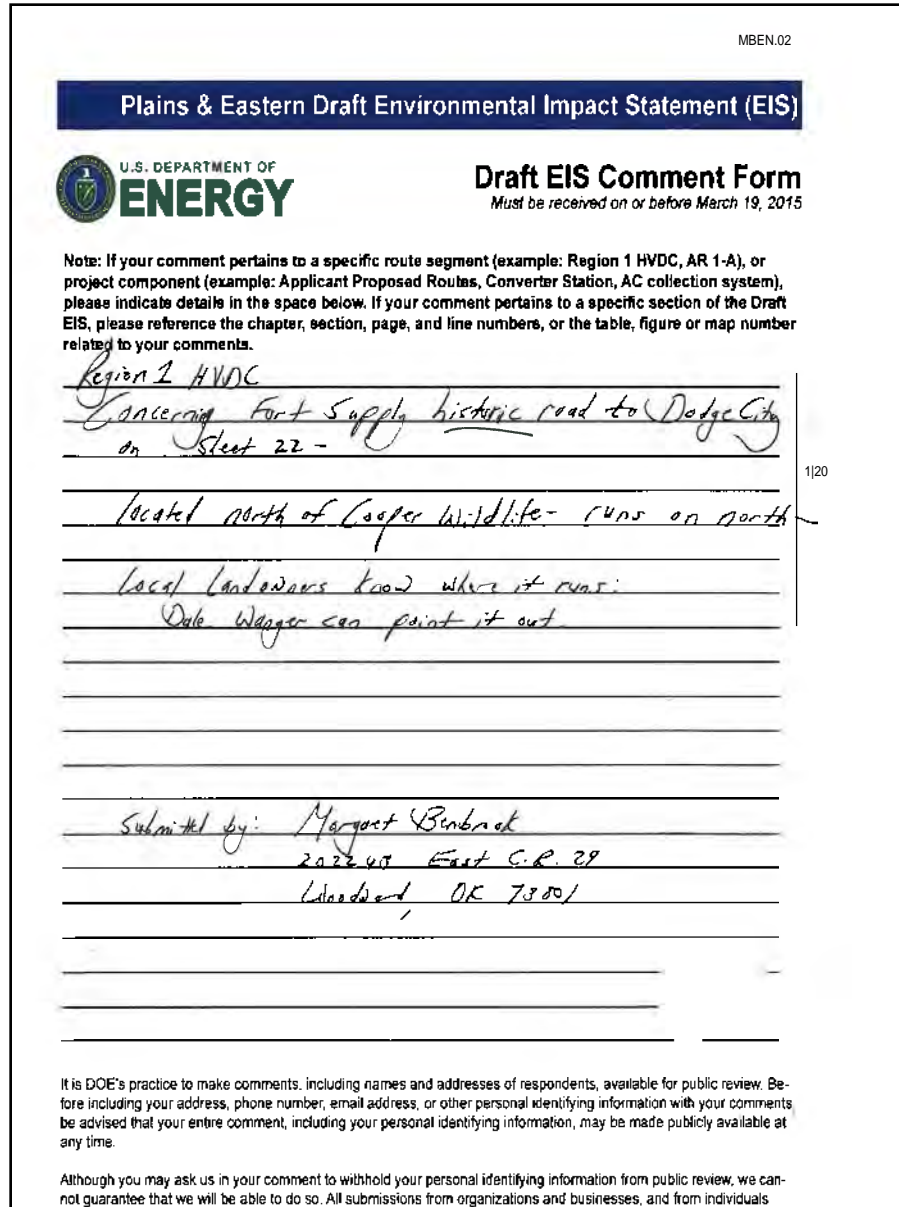 MBEN.02
Plains & Eastern Draft Environmental Impact Statement (EIS)
U.S. DEPARTMENT OF
ENERGY
Draft EIS Comment Form
Must be received on or before March 19, 2015
Note: If your comment pertains to a specific route segment (example: Region 1 HVDC, AR 1-A), or
project component (example: Applicant Proposed Routes, Converter Station, AC collection system),
please indicate details in the space below. If your comment pertains to a specific section of the Draft
EIS, please reference the chapter, section, page, and line numbers, or the table, figure or map number
related to your comments.
Region 1 HVDC
Concerning Fort Supply historic road to Dodge City
on Sleet 22 -
1|20
located north of Cooper Wildlife - runs on north
Local Landowners know where it runs:
Dale Wanger can point it out
Submitted by: Margaret Benbrook
East C.R. 29
Woodward, OK 73801
It is DOE's practice to make comments, including names and addresses of respondents, available for public review. Be-
fore including your address, phone number, email address, or other personal identifying information with your comments
be advised that your entire comment, including your personal identifying information, may be made publicly available at
any time.
Although you may ask us in your comment to withhold your personal identifying information from public review, we can-
not guarantee that we will be able to do so. All submissions from organizations and businesses, and from individuals